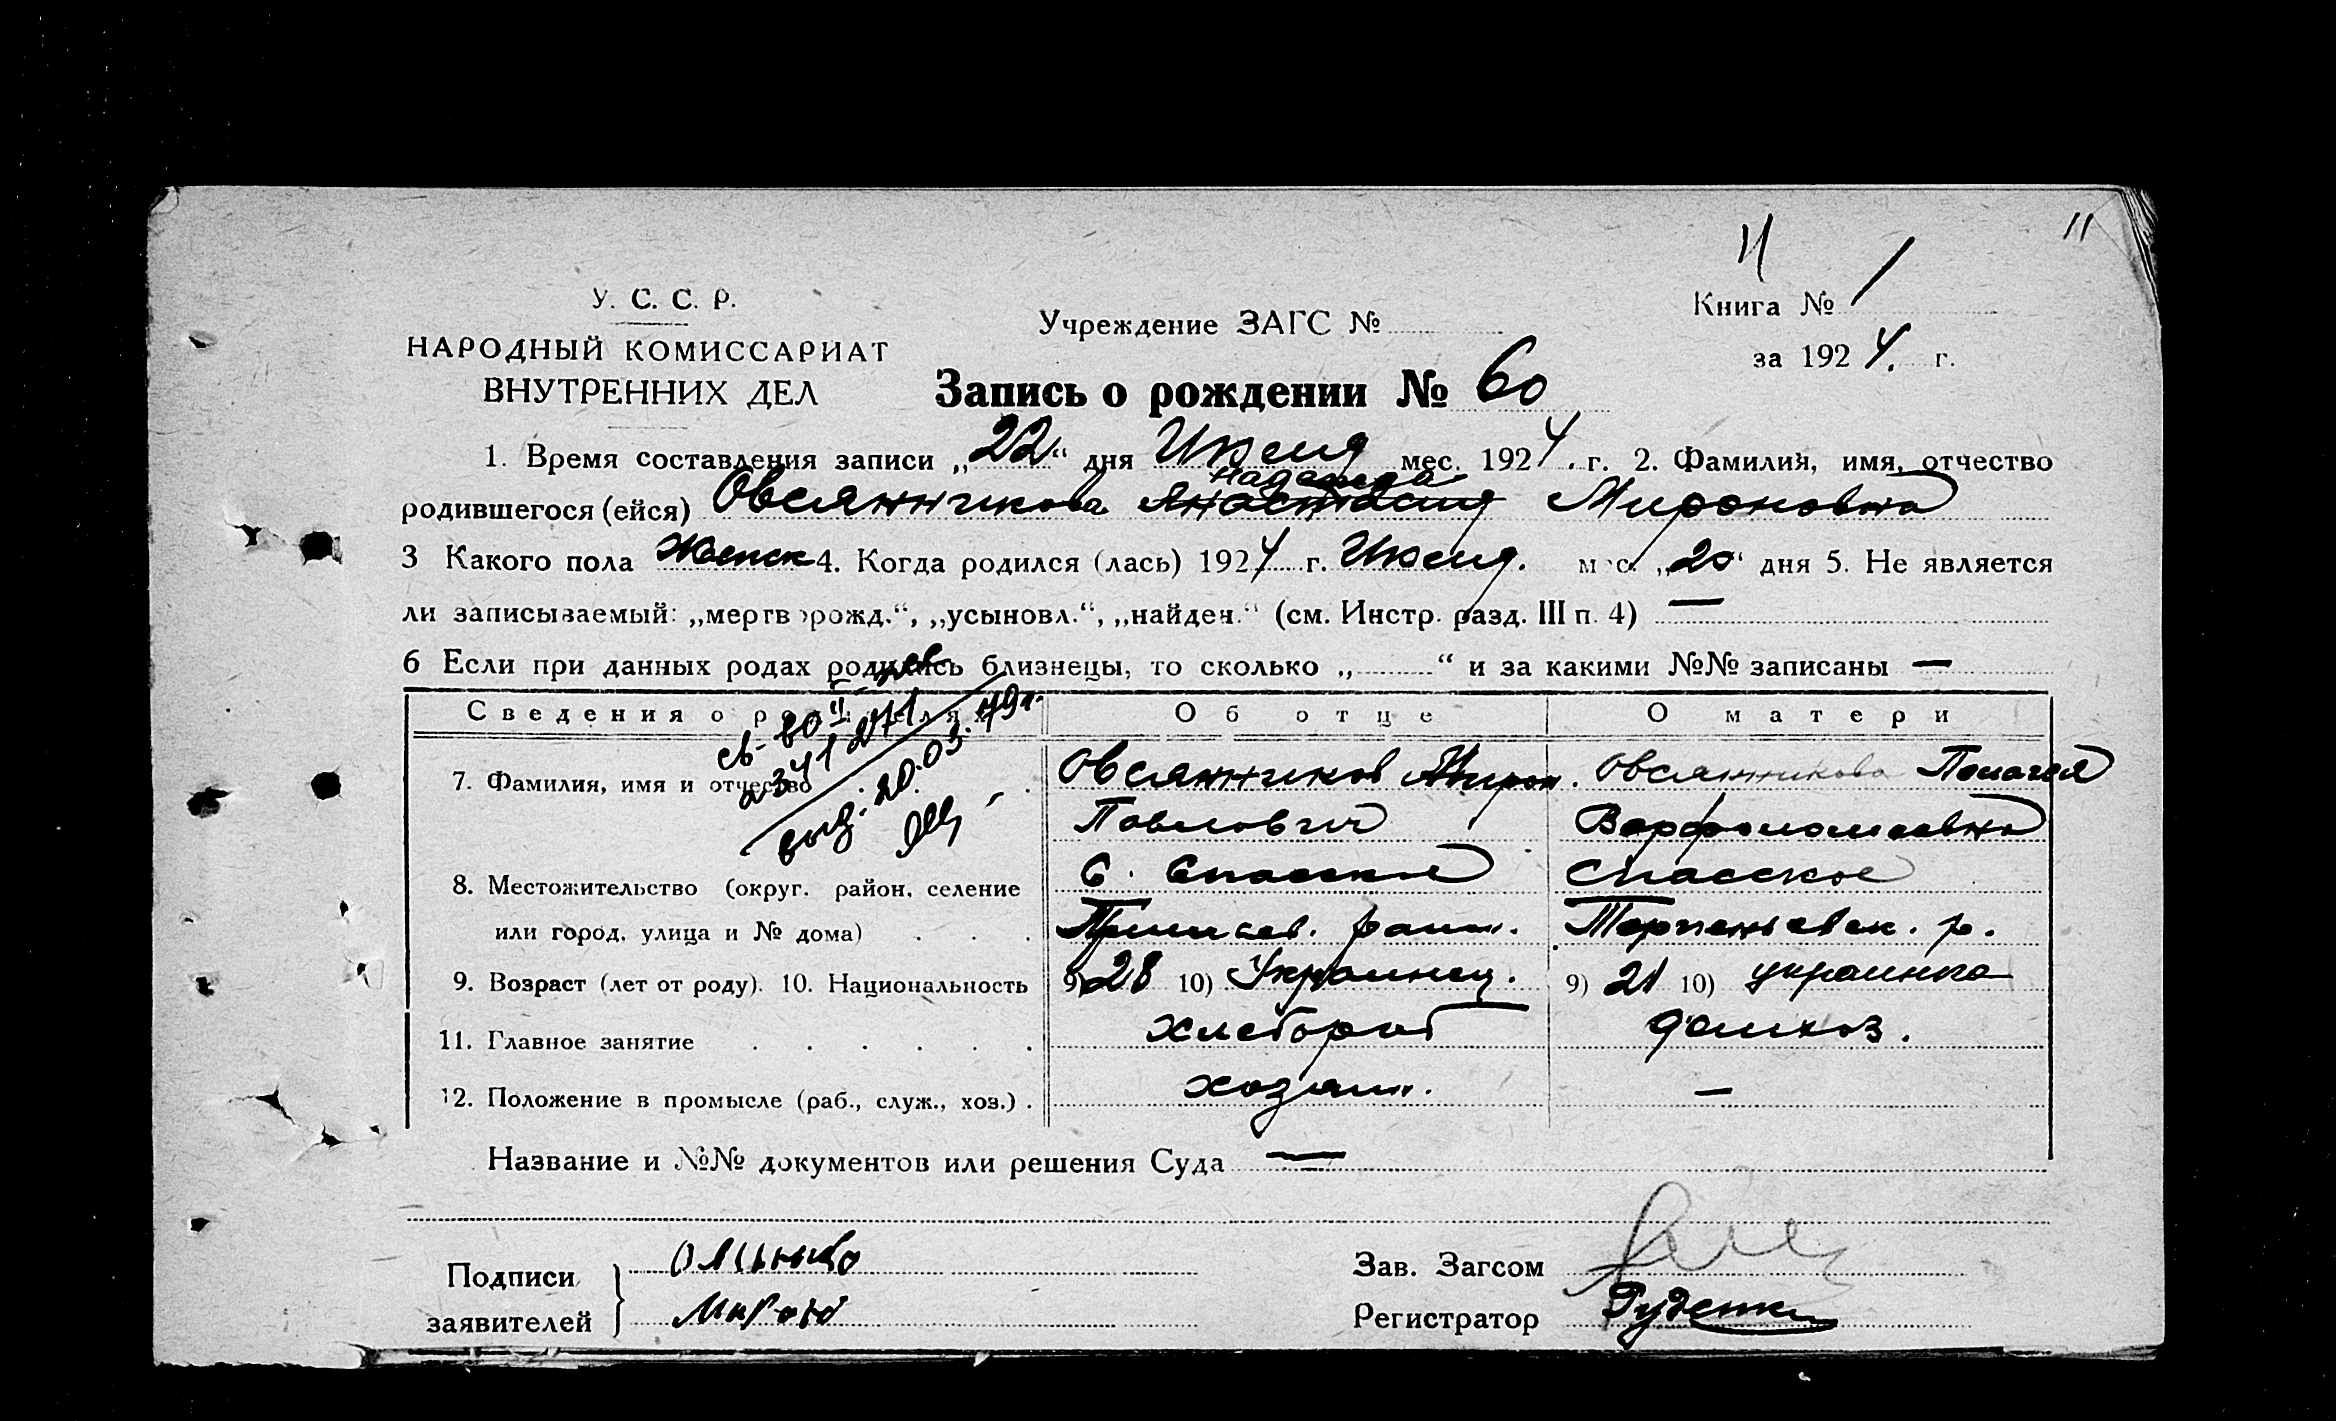 11
11
У. С. С. Р.
НАРОДНЫЙ КОМИССАРИАТ
ВНУТРЕННИХ ДЕЛ
Учреждение ЗАГС №
Книга № 1
за 1924. г.
Запись о рождении № 60
1. Время составления записи „22“ дня Июля мес. 1924. г. 2. Фамилия, имя, отчество
Надежда
родившегося (ейся) Овсянникова Анастасия Мироновна
3 Какого пола Женск 4. Когда родился (лась) 1924 г. Июля. мес. „20“ дня 5. Не является
ли записываемый: „мертворожд.“, „усыновл.“, „найден.“ (см. Инстр. разд. III п. 4) —
6 Если при данных родах родились близнецы, то сколько „ “ и за какими №№ записаны —
Сведения о родителях Об отце О матери
7. Фамилия, имя и отчество Овсянников Мирон. Овсянникова Пелагея
Павлович Варфоломеевна
8. Местожительство (округ. район, селение С. Спасское Спасское
или город, улица и № дома) район. Терпеньевск. р.
9. Возраст (лет от роду). 10. Национальность 9) 28 10) Украинец. 9) 21 10) украинка
11. Главное занятие хлебороб домхоз.
12. Положение в промысле (раб., служ., хоз.) . хозяин. —
выд. 20.03.79г.
Название и №№ документов или решения Суда —
Подписи
заявителей
Мирон
Зав. Загсом
Регистратор Руденко